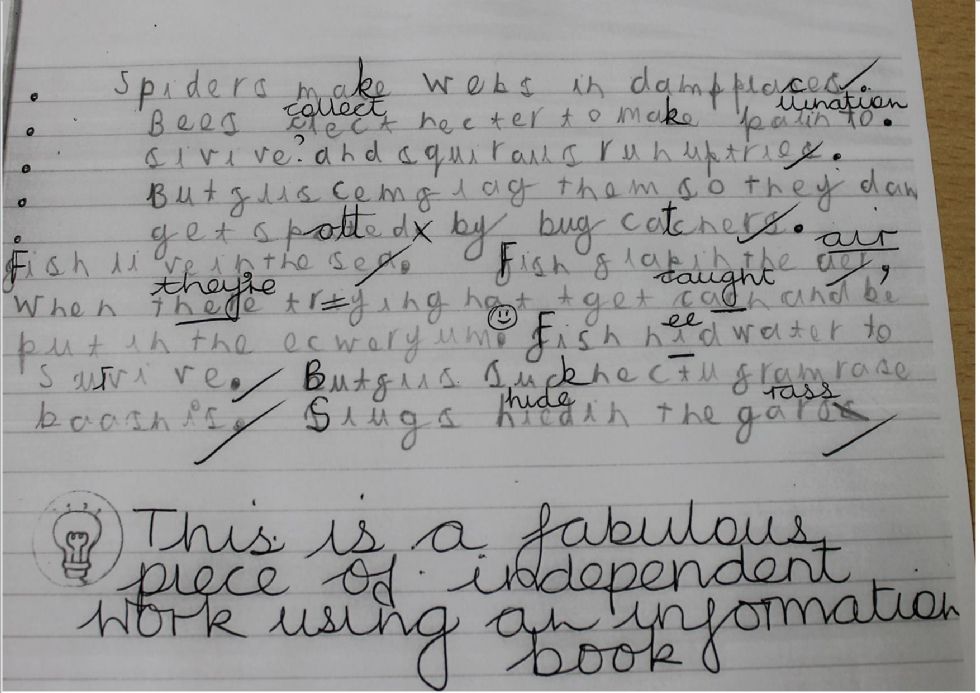 • Spiders make webs in dampplaces.
collect llination
• Bees clect necter to make palin to.
• sirive? and squiralls run uptries.
• Butgliis cemglag them so they dan
• get spotted by bug catchers.
air
Fish li ve in the sea. Fish glap in the aer,
they're caught
When there trying not tget cagh and be
put in the ecweryum. ☺
ee
Fish nid water to
surrvive. Butgliis suck nectu gramrase
hide rass
baashis. Slugs hiedin the gars
This is a fabulous
piece of independent
work using an information
book